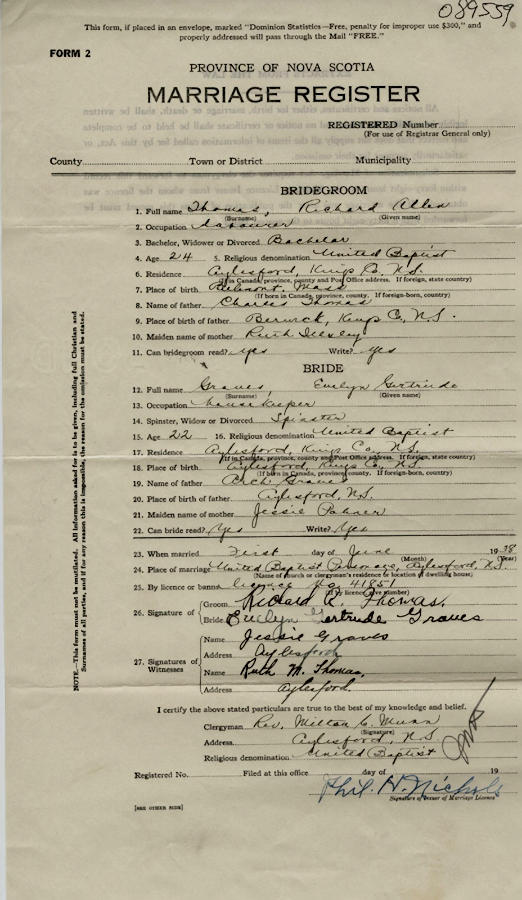 089559
This form, if placed in an envelope, marked "Dominion Statistics—Free, penalty for improper use $300," and
properly addressed will pass through the Mail "FREE."
FORM 2
PROVINCE OF NOVA SCOTIA
MARRIAGE REGISTER
REGISTERED Number
(For use of Registrar General only)
County Town or District Municipality
BRIDEGROOM
1. Full name Thomas, Richard Allen
(Surname) (Given name)
2. Occupation Labourer
3. Bachelor, Widower or Divorced Bachelor
4. Age 24 5. Religious denomination United Baptist
6. Residence Aylesford, Kings Co. N.S.
(If in Canada, province, county and Post Office address. If foreign, state country)
7. Place of birth Belmont, Mass
(If born in Canada, province, county. If foreign-born, country)
8. Name of father Charles Thomas
9. Place of birth of father Berwick, Kings Co, N.S.
10. Maiden name of mother Ruth Illsley
11. Can bridegroom read? Yes Write? Yes
BRIDE
12. Full name Graves, Evelyn Gertrude
(Surname) (Given name)
13. Occupation housekeeper
14. Spinster, Widow or Divorced Spinster
15. Age 22 16. Religious denomination United Baptist
17. Residence Aylesford, Kings Co. N.S.
(If in Canada, province, county and Post Office address. If foreign, state country)
18. Place of birth Aylesford, Kings Co. N.S.
(If born in Canada, province, county. If foreign-born, country)
19. Name of father Arch Graves
20. Place of birth of father Aylesford, N.S.
21. Maiden name of mother Jessie Palmer
22. Can bride read? Yes Write? Yes
23. When married First day of June 1938
(Month) (Year)
24. Place of marriage United Baptist Parsonage, Aylesford, N.S.
(Name of church or clergyman's residence or location of dwelling house)
25. By licence or banns license No. 41851
(If by licence give number)
26. Signature of
Groom Richard A. Thomas.
Bride Evelyn Gertrude Graves
27. Signatures of Witnesses
Name Jessie Graves
Address Aylesford
Name Ruth M. Thomas,
Address Aylesford.
I certify the above stated particulars are true to the best of my knowledge and belief.
Clergyman Rev. Milton C. Munn
(Signature)
Address Aylesford, N.S.
Religious denomination United Baptist
Registered No. Filed at this office day of 19
Phil. H. Nichols
Signature of Issuer of Marriage Licence
[SEE OTHER SIDE]
NOTE—This form must not be mutilated. All information asked for is to be given, including full Christian and
Surnames of all parties, and if for any reason this is impossible, the reason for the omission must be stated.